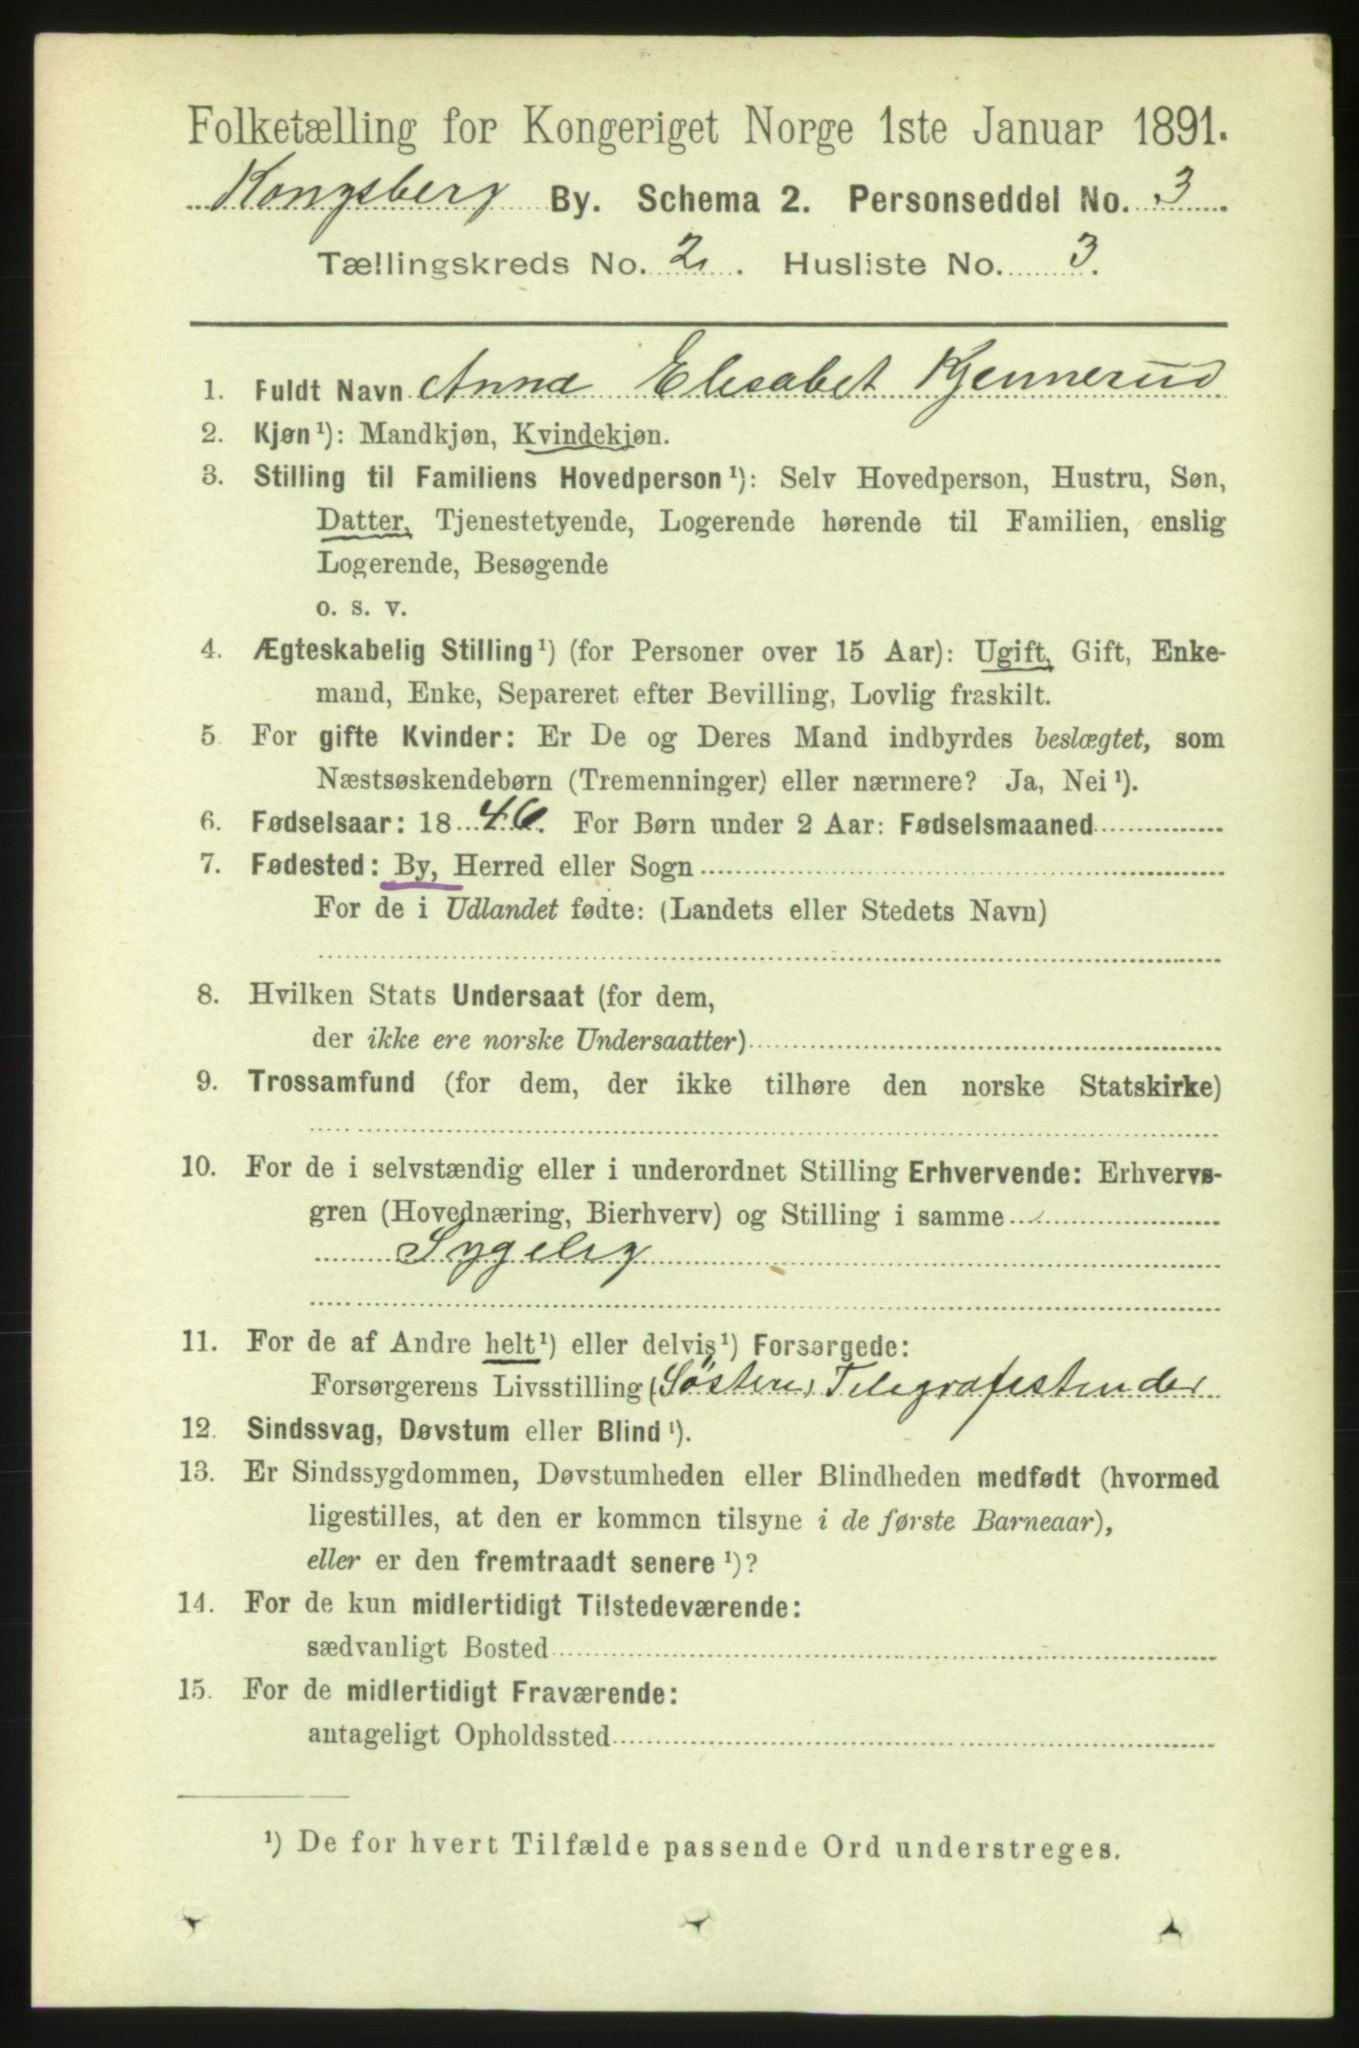 Folketælling for Kongeriget Norge 1ste Januar 1891.
Kongsberg By. Schema 2. Personseddel No. 3.
Tællingskreds No. 2. Husliste No. 3.
1. Fuldt Navn Anna Elisabet Kjennerud
2. Kjøn¹): Mandkjøn, Kvindekjøn.
3. Stilling til Familiens Hovedperson¹): Selv Hovedperson, Hustru, Søn,
Datter, Tjenestetyende, Logerende hørende til Familien, enslig
Logerende, Besøgende
o. s. v.
4. Ægteskabelig Stilling¹) (for Personer over 15 Aar): Ugift, Gift, Enke-
mand, Enke, Separeret efter Bevilling, Lovlig fraskilt.
5. For gifte Kvinder: Er De og Deres Mand indbyrdes beslægtet, som
Næstsøskendebørn (Tremenninger) eller nærmere? Ja, Nei¹).
6. Fødselsaar: 1846. For Børn under 2 Aar: Fødselsmaaned
7. Fødested: By, Herred eller Sogn
For de i Udlandet fødte: (Landets eller Stedets Navn)
8. Hvilken Stats Undersaat (for dem,
der ikke ere norske Undersaatter)
9. Trossamfund (for dem, der ikke tilhøre den norske Statskirke)
10. For de i selvstændig eller i underordnet Stilling Erhvervende: Erhvervs-
gren (Hovednæring, Bierhverv) og Stilling i samme
Sygelig
11. For de af Andre helt¹) eller delvis¹) Forsørgede:
Forsørgerens Livsstilling (Søstere)
12. Sindssvag, Døvstum eller Blind¹).
13. Er Sindssygdommen, Døvstumheden eller Blindheden medfødt (hvormed
ligestilles, at den er kommen tilsyne i de første Barneaar),
eller er den fremtraadt senere¹)?
14. For de kun midlertidigt Tilstedeværende:
sædvanligt Bosted
15. For de midlertidigt Fraværende:
antageligt Opholdssted
¹) De for hvert Tilfælde passende Ord understreges.